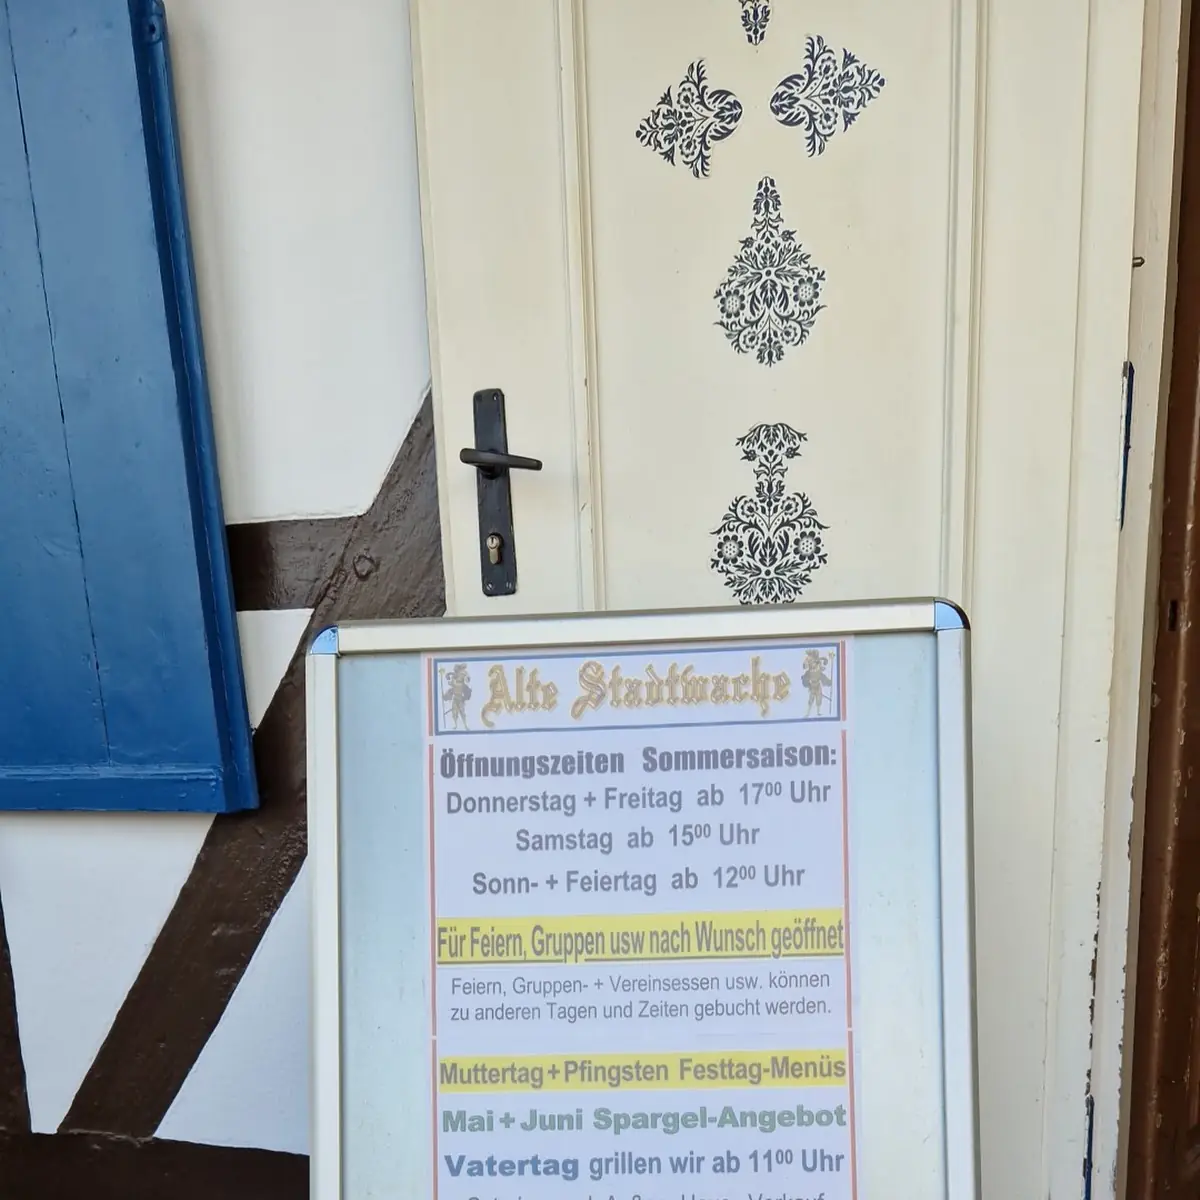 Alte Stadtwache
Öffnungszeiten Sommersaison:
Donnerstag + Freitag ab 17⁰⁰ Uhr
Samstag ab 15⁰⁰ Uhr
Sonn- + Feiertag ab 12⁰⁰ Uhr
Für Feiern, Gruppen usw nach Wunsch geöffnet
Feiern, Gruppen- + Vereinsessen usw. können
zu anderen Tagen und Zeiten gebucht werden.
Muttertag + Pfingsten Festtag-Menüs
Mai + Juni Spargel-Angebot
Vatertag grillen wir ab 11⁰⁰ Uhr